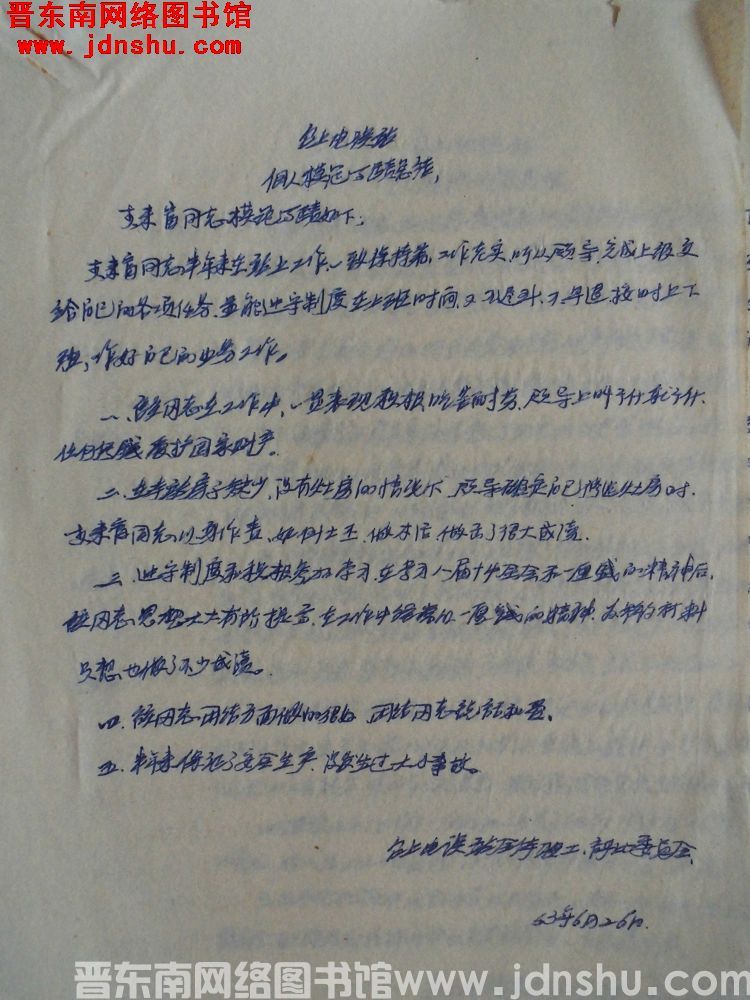 晋东南网络图书馆
www.jdnshu.com
台上电误站
个人模范事迹总结,
来富同志模范事迹如下:
来富同志半年来在站上工作一致保持着,工作充实,听从领导,完成上级交
给自己的各项任务,并能遵守制度在上班时间,又不迟到,不早退,按时上下
班,作好自己的业务工作。
一、该同志在工作中,一贯表现积极,吃苦耐劳,领导上叫干什就干什,
爱护国家财产。
二、在本站房子缺少,没有灶房的情况下,领导确定自己修灶房时,
来富同志以身作责,土工,做木活,做出了很大成绩.
三、遵守制度和积极参加学习,在学习八届十中全会的精神后,
该同志思想上大有所提高,在工作中的精神,为节约材料
也做了不少成绩。
四、该同志团结方面做的很好,团结同志说话和蔼,
五、半年来保证了安全生产,没发生过大小事故。
台上电误站全体职工、委员会
63年6月26日.
晋东南网络图书馆www.jdnshu.com